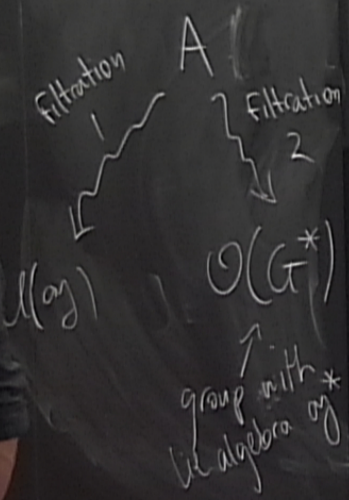 A
Filtration
1
Filtration
2
U(𝔤)
O(G*)
group with
Lie algebra 𝔤*